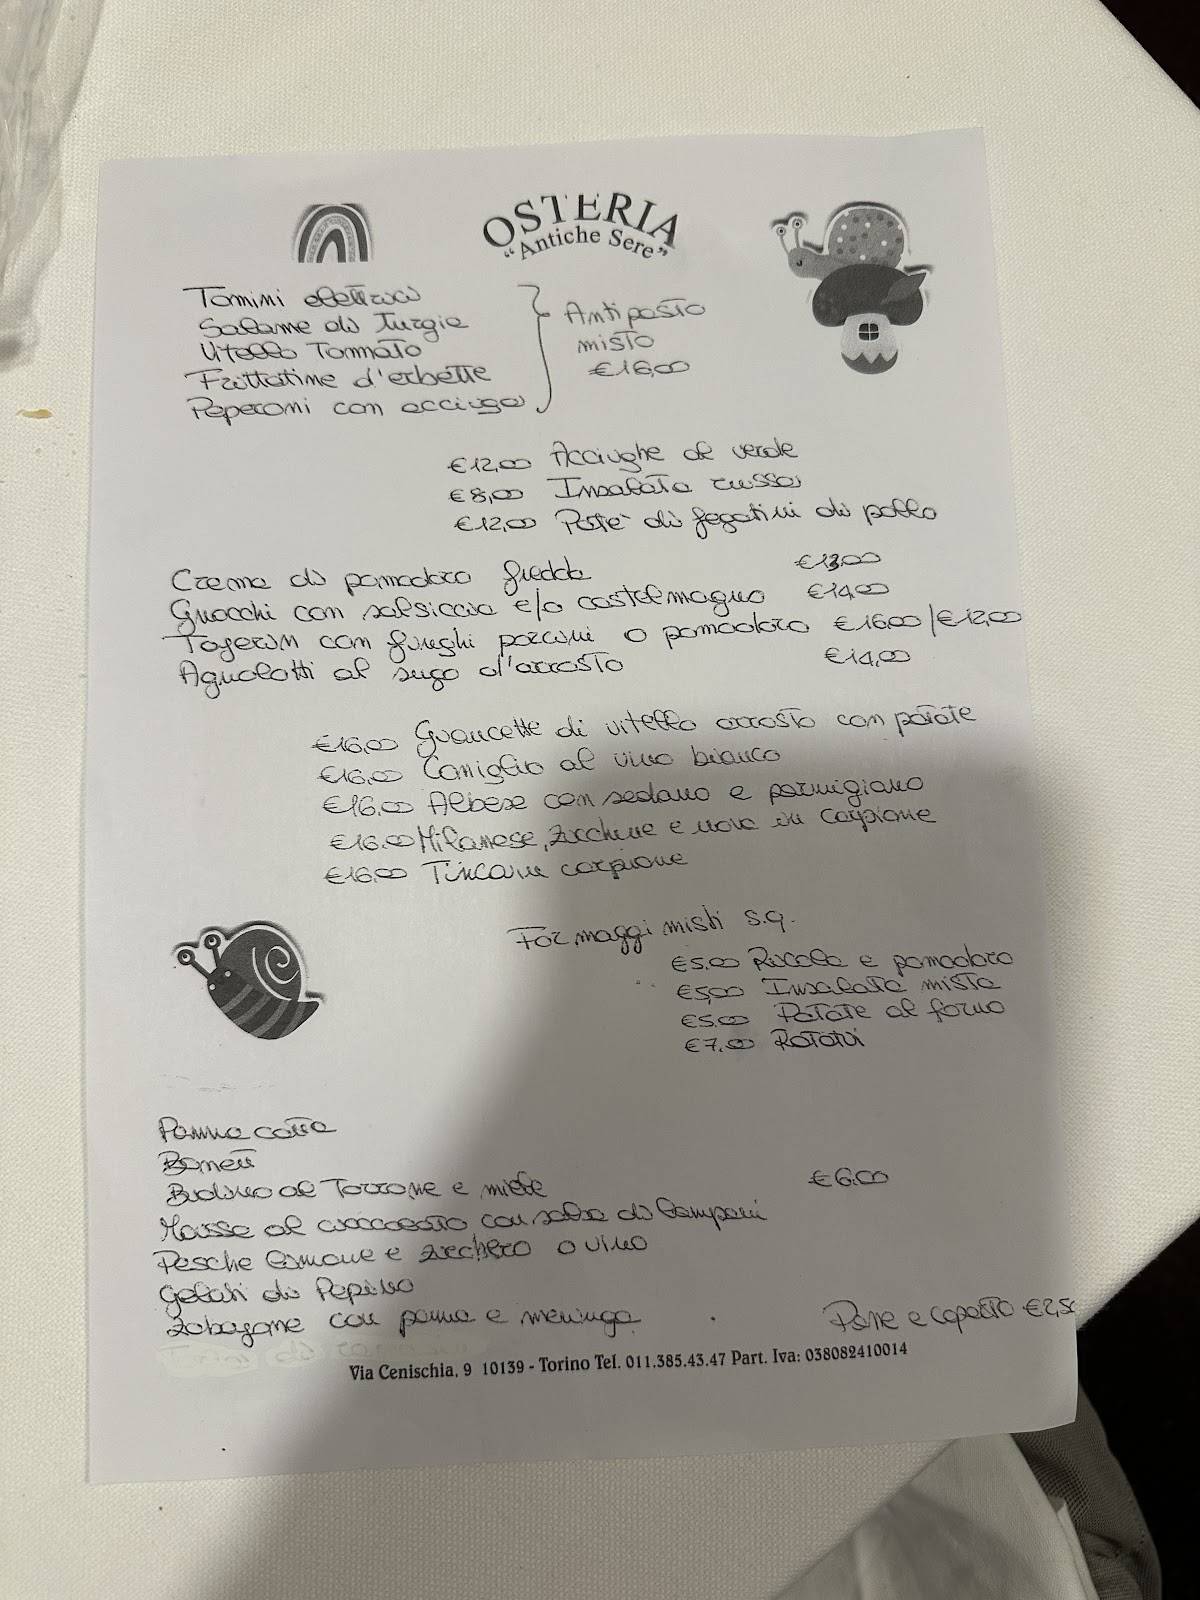 OSTERIA
"Antiche Sere"
Tomini elettrici
Salame di Turgia
Vitello Tonnato
Frittatine d'erbette
Peperoni con acciuga
Antipasto
misto
€16,00
€12,00 Acciughe al verde
€8,00 Insalata russa
€12,00 Patè di fegatini di pollo
Crema di pomodoro fredda €13,00
Gnocchi con salsiccia e/o castelmagno €14,00
Tajerin con funghi porcini o pomodoro €16,00/€12,00
Agnolotti al sugo d'arrosto €14,00
€16,00 Guancette di vitello arrosto con patate
€16,00 Coniglio al vino bianco
€16,00 Albese con sedano e parmigiano
€16,00 Milanese, zucchine e uova in carpione
€16,00 Tinca in carpione
Formaggi misti s.q.
€5,00 Rucola e pomodoro
€5,00 Insalata mista
€5,00 Patate al forno
€7,00
Panna cotta
Bonett
Budino al Torrone e miele €6,00
Mousse al cioccolato con salsa di lamponi
Pesche limone e zucchero o vino
Gelati di Pepino
Zabajone con panna e meringa
Pane e coperto €2,50
Via Cenischia, 9 10139 - Torino Tel. 011.385.43.47 Part. Iva: 038082410014